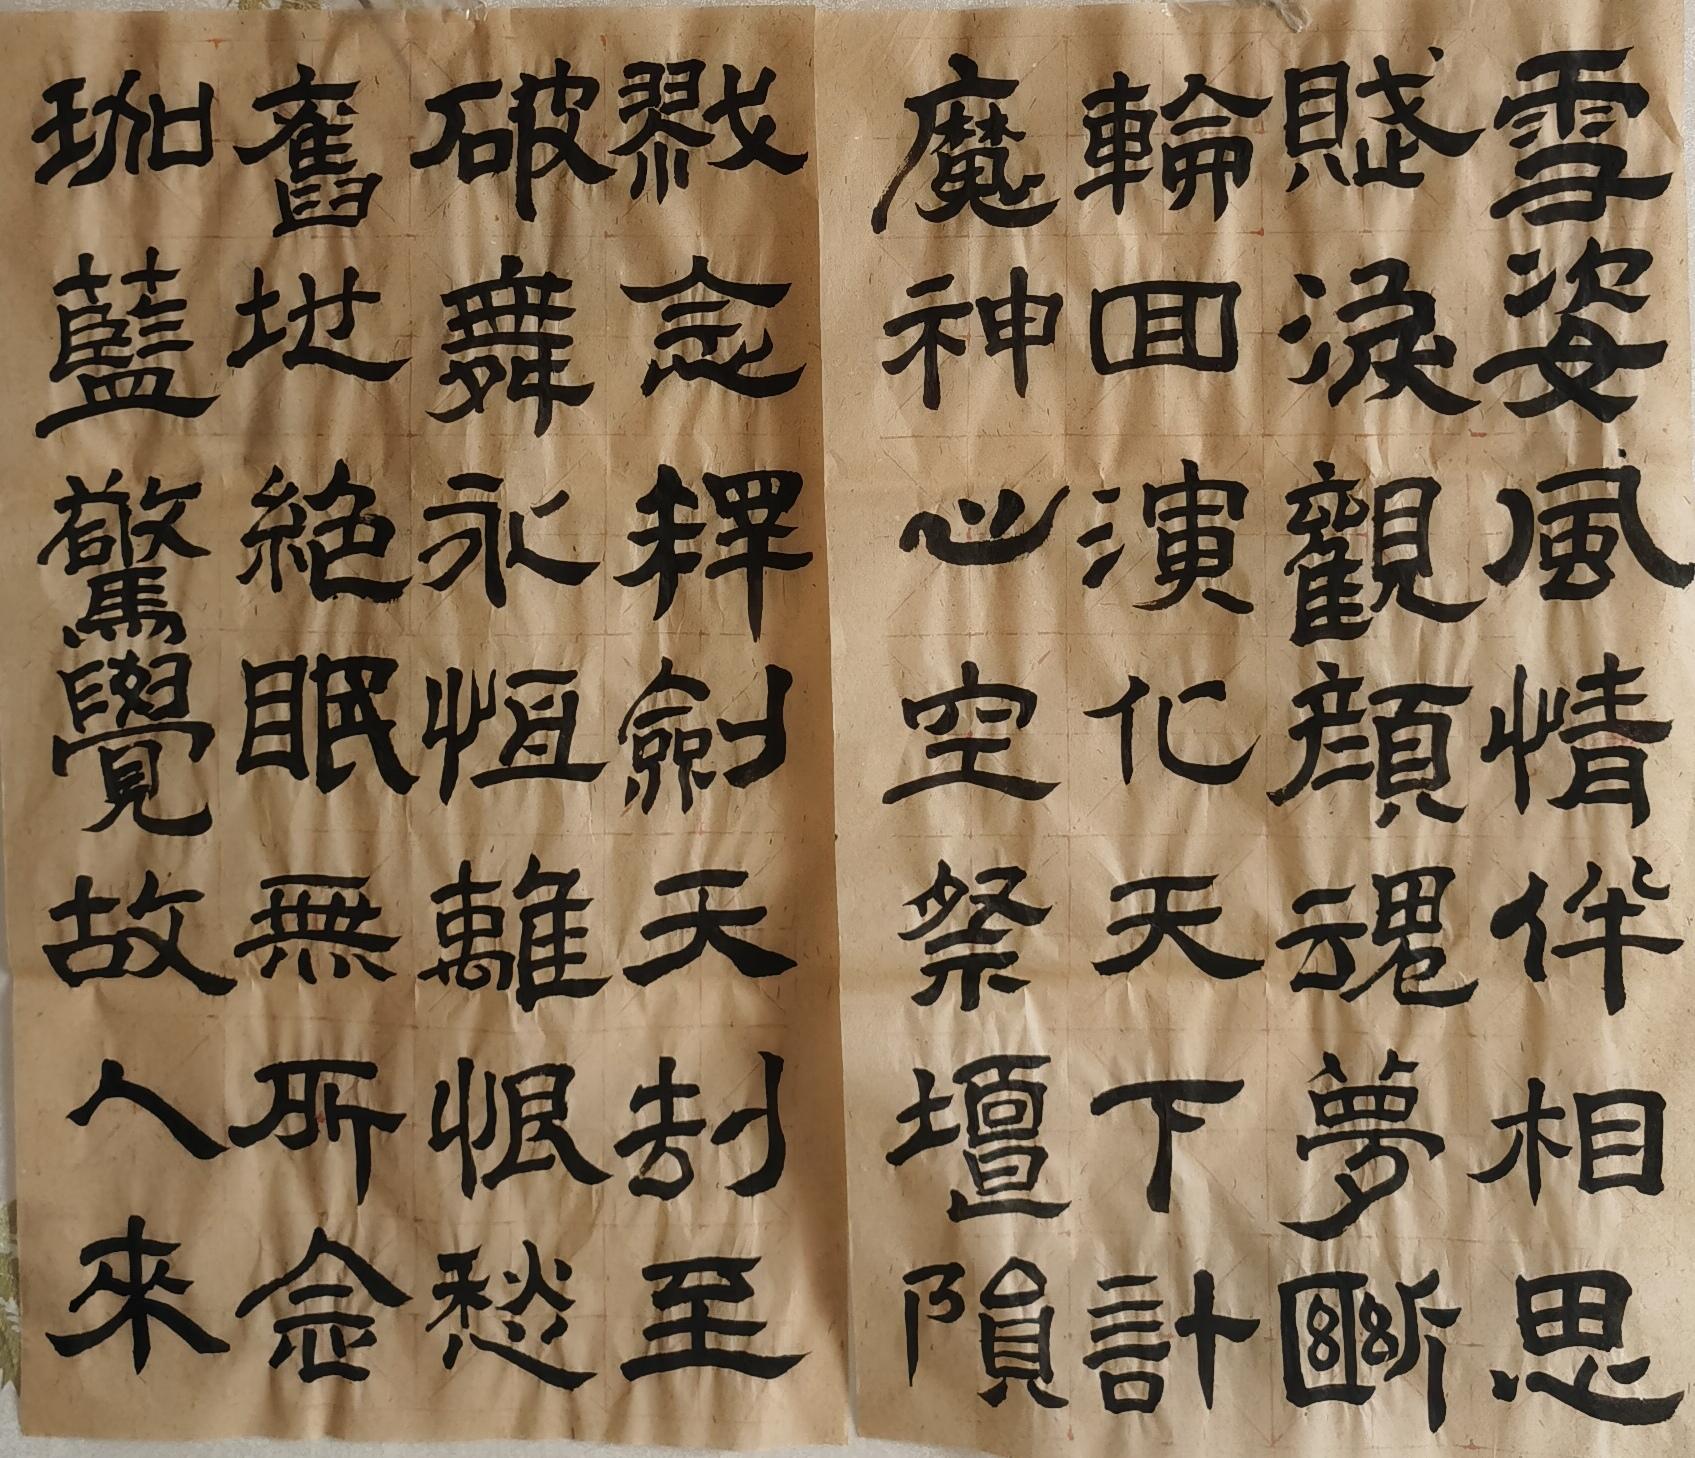 雪姿風情伴相思
賤淚觀顏魂夢斷
輪回演化天下計
魔神心空祭壇隕
戮念釋劍天劫至
破舞永恆離恨愁
舊地絕眠無所念
珈藍驚覺故人來